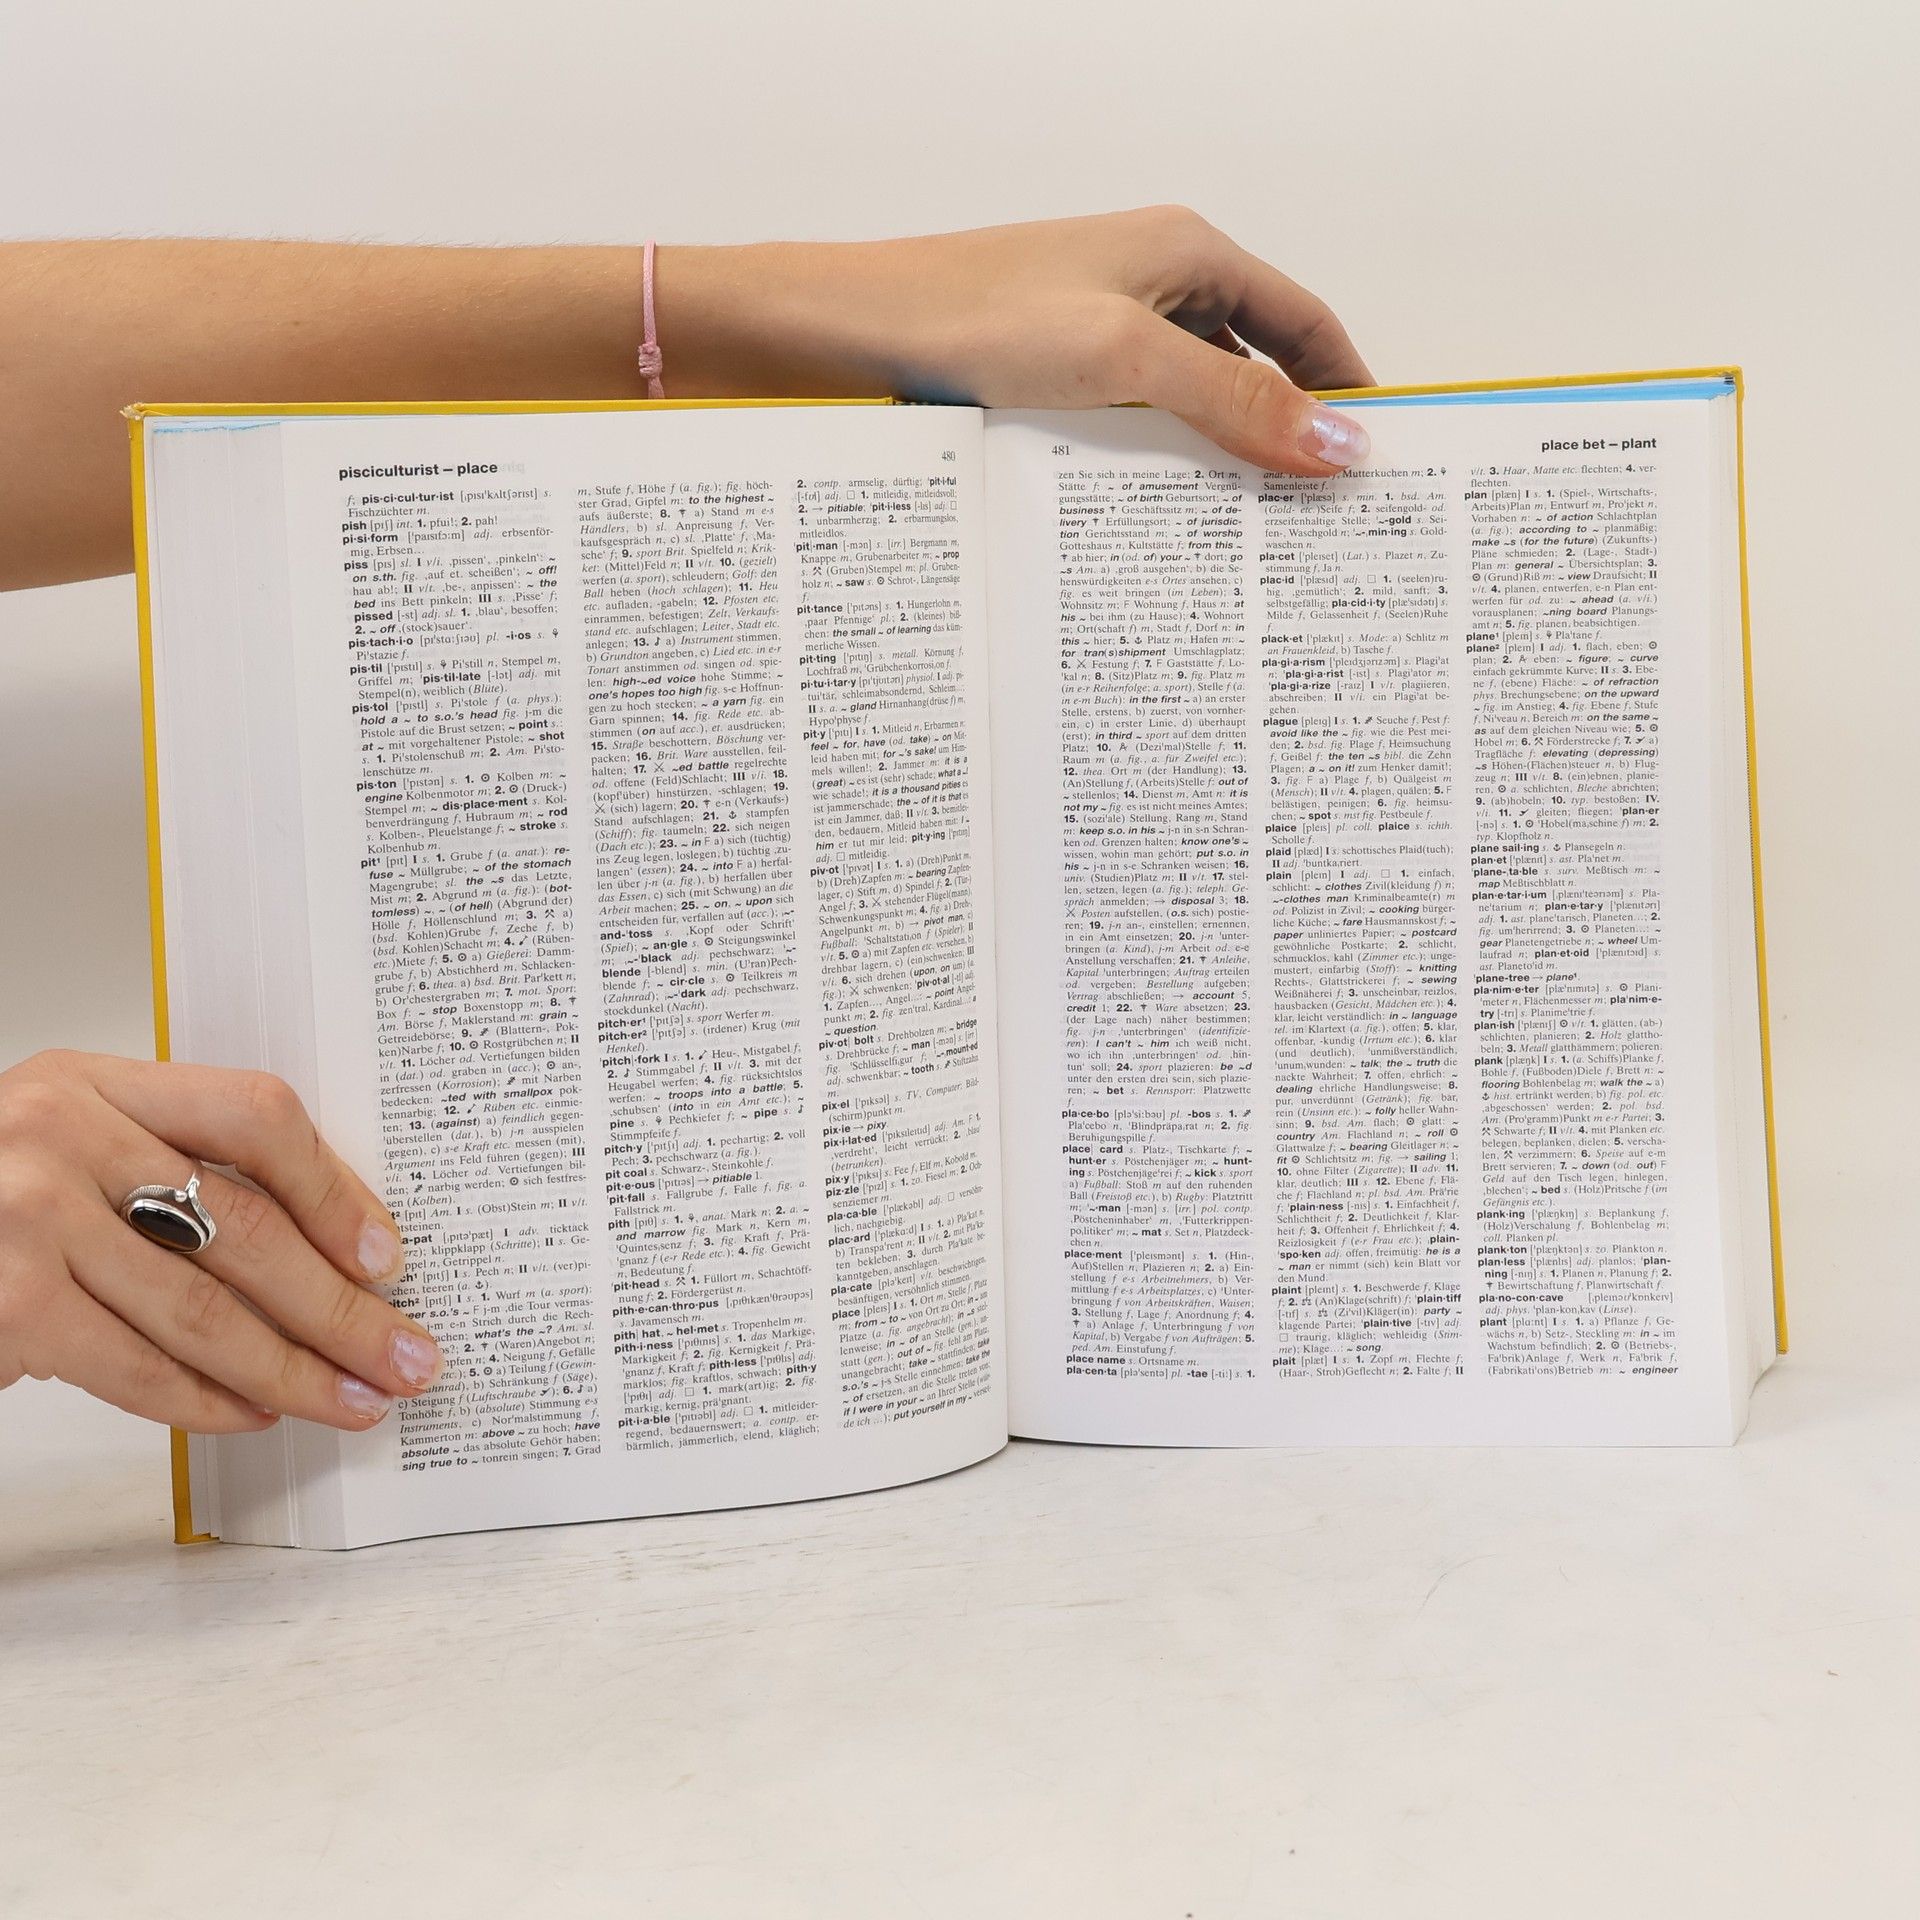 pisciculturist – place
480
f; pis·ci·cul·tur·ist [ˌpɪsɪˈkʌltʃərɪst] s.
Fischzüchter m.
pish [pɪʃ] int. 1. pfui!; 2. pah!
pi·si·form [ˈpaɪsɪfɔːm] adj. erbsenför-
mig, Erbsen…
piss [pɪs] sl. I v/i. ‚pissen‘, ‚pinkeln‘: ~
on s.th. fig. ‚auf et. scheißen‘; ~ off!
hau ab!; II v/t. ‚be-, anpissen‘: ~ the
bed ins Bett pinkeln; III s. ‚Pisse‘ f;
pissed [-st] adj. sl. 1. ‚blau‘, besoffen;
2. ~ off ‚(stock)sauer‘.
pis·tach·i·o [pɪˈstɑːʃɪəʊ] pl. -i·os s. ⚘
Piˈstazie f.
pis·til [ˈpɪstɪl] s. ⚘ Piˈstill n, Stempel m,
Griffel m; ˈpis·til·late [-lət] adj. mit
Stempel(n), weiblich (Blüte).
pis·tol [ˈpɪstl] s. Piˈstole f (a. phys.):
hold a ~ to s.o.'s head fig. j-m die
Pistole auf die Brust setzen; ~ point s.:
at ~ mit vorgehaltener Pistole; ~ shot
s. 1. Piˈstolenschuß m; 2. Am. Piˈsto-
lenschütze m.
pis·ton [ˈpɪstən] s. 1. ⚙ Kolben m: ~
engine Kolbenmotor m; 2. ⚙ (Druck-)
Stempel m; ~ dis·place·ment s. Kol-
benverdrängung f, Hubraum m; ~ rod
s. Kolben-, Pleuelstange f; ~ stroke s.
Kolbenhub m.
pit¹ [pɪt] I s. 1. Grube f (a. anat.): re-
fuse ~ Müllgrube; ~ of the stomach
Magengrube; sl. the ~s das Letzte,
Mist m; 2. Abgrund m (a. fig.): (bot-
tomless) ~, ~ (of hell) (Abgrund der)
Hölle f, Höllenschlund m; 3. ⚒ a)
(bsd. Kohlen)Grube f, Zeche f, b)
(bsd. Kohlen)Schacht m; 4. (Rüben-
etc.)Miete f; 5. ⚙ a) Gießerei: Damm-
grube f, b) Abstichherd m, Schlacken-
grube f; 6. thea. a) bsd. Brit. Parˈkett n,
b) Orˈchestergraben m; 7. mot. Sport:
Box f: ~ stop Boxenstopp m; 8. ✝
Am. Börse f, Maklerstand m: grain ~
Getreidebörse; 9. (Blattern-, Pok-
ken)Narbe f; 10. ⚙ Rostgrübchen n; II
v/t. 11. Löcher od. Vertiefungen bilden
in (dat.) od. graben in (acc.); ⚙ an-,
zerfressen (Korrosion); mit Narben
bedecken: ~ted with smallpox pok-
kennarbig; 12. Rüben etc. einmie-
ten; 13. (against) a) feindlich gegen-
ˈüberstellen (dat.), b) j-n ausspielen
(gegen), c) s-e Kraft etc. messen (mit),
Argument ins Feld führen (gegen); III
v/i. 14. Löcher od. Vertiefungen bil-
den; narbig werden; ⚙ sich festfres-
sen (Kolben).
[pɪt] Am. I s. (Obst)Stein m; II v/t.
[ˌpɪtəˈpæt] I adv. ticktack
klippklapp (Schritte); II s. Ge-
n, Getrippel n.
[pɪtʃ] I s. Pech n; II v/t. (ver)pi-
chen, teeren (a. ⚓).
[pɪtʃ] I s. 1. Wurf m (a. sport):
s.o.'s ~ F j-m ‚die Tour vermas-
j-m e-n Strich durch die Rech-
what's the ~? Am. sl.
2. ✝ (Waren)Angebot n;
n; 4. Neigung f, Gefälle
5. ⚙ a) Teilung f (Gewin-
b) Schränkung f (Säge),
c) Steigung f (Luftschraube); 6. ♪ a)
Tonhöhe f, b) (absolute) Stimmung e-s
Instruments, c) Norˈmalstimmung f,
Kammerton m: above ~ zu hoch; have
absolute ~ das absolute Gehör haben;
sing true to ~ tonrein singen; 7. Grad
m, Stufe f, Höhe f (a. fig.); fig. höch-
ster Grad, Gipfel m: to the highest ~
aufs äußerste; 8. ✝ a) Stand m e-s
Händlers, b) sl. Anpreisung f, Ver-
kaufsgespräch n, c) sl. ‚Platte‘ f, ‚Ma-
sche‘ f; 9. sport Brit. Spielfeld n; Krik-
ket: (Mittel)Feld n; II v/t. 10. (gezielt)
werfen (a. sport), schleudern; Golf: den
Ball heben (hoch schlagen); 11. Heu
etc. aufladen, -gabeln; 12. Pfosten etc.
einrammen, befestigen; Zelt, Verkaufs-
stand etc. aufschlagen; Leiter, Stadt etc.
anlegen; 13. ♪ a) Instrument stimmen,
b) Grundton angeben, c) Lied etc. in e-r
Tonart anstimmen od. singen od. spie-
len: high-~ed voice hohe Stimme; ~
one's hopes too high fig. s-e Hoffnun-
gen zu hoch stecken; ~ a yarn fig. ein
Garn spinnen; 14. fig. Rede etc. ab-
stimmen (on auf acc.), et. ausdrücken;
15. Straße beschottern, Böschung ver-
packen; 16. Brit. Ware ausstellen, feil-
halten; 17. ⚔ ~ed battle regelrechte
od. offene (Feld)Schlacht; III v/i. 18.
(kopfˈüber) hinstürzen, -schlagen; 19.
⚔ (sich) lagern; 20. ✝ e-n (Verkaufs-)
Stand aufschlagen; 21. ⚓ stampfen
(Schiff); fig. taumeln; 22. sich neigen
(Dach etc.); 23. ~ in F a) sich (tüchtig)
ins Zeug legen, loslegen, b) tüchtig ‚zu-
langen‘ (essen); 24. ~ into F a) herfal-
len über j-n (a. fig.), b) herfallen über
das Essen, c) sich (mit Schwung) an die
Arbeit machen; 25. ~ on, ~ upon sich
entscheiden für, verfallen auf (acc.); ˌ~-
and-ˈtoss s. ‚Kopf oder Schrift‘
(Spiel); ~ an·gle s. ⚙ Steigungswinkel
m; ˌ~-ˈblack adj. pechschwarz; ˈ~-
blende [-blend] s. min. (Uˈran)Pech-
blende f; ~ cir·cle s. ⚙ Teilkreis m
(Zahnrad); ˌ~-ˈdark adj. pechschwarz,
stockdunkel (Nacht).
pitch·er¹ [ˈpɪtʃə] s. sport Werfer m.
pitch·er² [ˈpɪtʃə] s. (irdener) Krug (mit
Henkel).
ˈpitch|·fork I s. 1. Heu-, Mistgabel f;
2. ♪ Stimmgabel f; II v/t. 3. mit der
Heugabel werfen; 4. fig. rücksichtslos
werfen: ~ troops into a battle; 5.
‚schubsen‘ (into in ein Amt etc.); ~
pine s. ⚘ Pechkiefer f; ~ pipe s. ♪
Stimmpfeife f.
pitch·y [ˈpɪtʃɪ] adj. 1. pechartig; 2. voll
Pech; 3. pechschwarz (a. fig.).
pit coal s. Schwarz-, Steinkohle f.
pit·e·ous [ˈpɪtɪəs] → pitiable 1.
ˈpit·fall s. Fallgrube f, Falle f, fig. a.
Fallstrick m.
pith [pɪθ] s. 1. ⚘, anat. Mark n; 2. a. ~
and marrow fig. Mark n, Kern m,
ˈQuintesˌsenz f; 3. fig. Kraft f, Prä-
ˈgnanz f (e-r Rede etc.); 4. fig. Gewicht
n, Bedeutung f.
ˈpit·head s. ⚒ 1. Füllort m, Schachtöff-
nung f; 2. Fördergerüst n.
pith·e·can·thro·pus [ˌpɪθɪkænˈθrəʊpəs]
s. Javamensch m.
pith| hat, ~ hel·met s. Tropenhelm m.
pith·i·ness [ˈpɪθɪnɪs] s. 1. das Markige,
Markigkeit f; 2. fig. Kernigkeit f, Prä-
ˈgnanz f, Kraft f; pith·less [ˈpɪθlɪs] adj.
marklos; fig. kraftlos, schwach; pith·y
[ˈpɪθɪ] adj. □ 1. mark(art)ig; 2. fig.
markig, kernig, präˈgnant.
pit·i·a·ble [ˈpɪtɪəbl] adj. □ 1. mitleider-
regend, bedauernswert; a. contp. er-
bärmlich, jämmerlich, elend, kläglich;
2. contp. armselig, dürftig; ˈpit·i·ful
[-fʊl] adj. □ 1. mitleidig, mitleidsvoll;
2. → pitiable; ˈpit·i·less [-lɪs] adj. □
1. unbarmherzig; 2. erbarmungslos,
mitleidlos.
ˈpit|·man [-mən] s. [irr.] Bergmann m,
Knappe m, Grubenarbeiter m; ~ prop
s. ⚒ (Gruben)Stempel m; pl. Gruben-
holz n; ~ saw s. ⚙ Schrot-, Längensäge
f.
pit·tance [ˈpɪtəns] s. 1. Hungerlohn m,
‚paar Pfennige‘ pl.; 2. (kleines) biß-
chen: the small ~ of learning das küm-
merliche Wissen.
pit·ting [ˈpɪtɪŋ] s. metall. Körnung f,
Lochfraß m, ˈGrübchenkorrosiˌon f.
pi·tu·i·tar·y [pɪˈtjʊɪtərɪ] physiol. I adj. pi-
tuiˈtär, schleimabsondernd, Schleim…;
II s. a. ~ gland Hirnanhang(drüse f) m,
Hypoˈphyse f.
pit·y [ˈpɪtɪ] I s. 1. Mitleid n, Erbarmen n:
feel ~ for, have (od. take) ~ on Mit-
leid haben mit; for ~'s sake! um Him-
mels willen!; 2. Jammer m: it is a
(great) ~ es ist (sehr) schade; what a ~!
wie schade!; it is a thousand pities es
ist jammerschade; the ~ of it is that es
ist ein Jammer, daß; II v/t. 3. bemitlei-
den, bedauern, Mitleid haben mit: I ~
him er tut mir leid; pit·y·ing [ˈpɪtɪɪŋ]
adj. □ mitleidig.
piv·ot [ˈpɪvət] I s. 1. a) (Dreh)Punkt m,
b) (Dreh)Zapfen m: ~ bearing Zapfen-
lager, c) Stift m, d) Spindel f; 2. (Tür-)
Angel f; 3. ⚔ stehender Flügel(mann),
Schwenkungspunkt m; 4. fig. a) Dreh-,
Angelpunkt m, b) → pivot man, c)
Fußball: ˈSchaltstatiˌon f (Spieler); II
v/t. 5. ⚙ a) mit Zapfen etc. versehen, b)
drehbar lagern, c) (ein)schwenken; III
v/i. 6. sich drehen (upon, on um) (a.
fig.); ⚔ schwenken; ˈpiv·ot·al [-tl] adj.
1. Zapfen…, Angel…: ~ point Angel-
punkt m; 2. fig. zenˈtral, Kardinal…: a
~ question.
piv·ot| bolt s. Drehbolzen m; ~ bridge
s. Drehbrücke f; ~ man [-mən] s. [irr.]
fig. ˈSchlüsselfiˌgur f; ˈ~-ˌmount·ed
adj. schwenkbar; ~ tooth s. Stiftzahn
m.
pix·el [ˈpɪksəl] s. TV, Computer: Bild-
(schirm)punkt m.
pix·ie → pixy.
pix·i·lat·ed [ˈpɪksɪleɪtɪd] adj. Am. F 1.
‚verdreht‘, leicht verrückt; 2. ‚blau‘
(betrunken).
pix·y [ˈpɪksɪ] s. Fee f, Elf m, Kobold m.
piz·zle [ˈpɪzl] s. 1. zo. Fiesel m; 2. Och-
senziemer m.
pla·ca·ble [ˈplækəbl] adj. □ versöhn-
lich, nachgiebig.
plac·ard [ˈplækɑːd] I s. 1. a) Plaˈkat n,
b) Transpaˈrent n; II v/t. 2. mit Plaˈka-
ten bekleben; 3. durch Plaˈkate be-
kanntgeben, anschlagen.
pla·cate [pləˈkeɪt] v/t. beschwichtigen,
besänftigen, versöhnlich stimmen.
place [pleɪs] I s. 1. Ort m, Stelle f, Platz
m: from ~ to ~ von Ort zu Ort; in ~ am
Platze (a. fig. angebracht); in ~s stel-
lenweise; in ~ of an Stelle (gen.), an-
statt (gen.); out of ~ fig. fehl am Platz,
unangebracht; take ~ stattfinden; take
s.o.'s ~ j-s Stelle einnehmen; take the
~ of ersetzen, an die Stelle treten von;
if I were in your ~ an Ihrer Stelle (wür-
de ich …); put yourself in my ~ verset-
481
place bet – plant
zen Sie sich in meine Lage; 2. Ort m,
Stätte f: ~ of amusement Vergnü-
gungsstätte; ~ of birth Geburtsort; ~ of
business ✝ Geschäftssitz m; ~ of de-
livery ✝ Erfüllungsort; ~ of jurisdic-
tion Gerichtsstand m; ~ of worship
Gotteshaus n, Kultstätte f; from this ~
✝ ab hier; in (od. of) your ~ ✝ dort; go
~s Am. a) ‚groß ausgehen‘, b) die Se-
henswürdigkeiten e-s Ortes ansehen, c)
fig. es weit bringen (im Leben); 3.
Wohnsitz m; F Wohnung f, Haus n: at
his ~ bei ihm (zu Hause); 4. Wohnort
m; Ort(schaft f) m, Stadt f, Dorf n: in
this ~ hier; 5. ⚓ Platz m, Hafen m: ~
for tran(s)shipment Umschlagplatz;
6. ⚔ Festung f; 7. F Gaststätte f, Lo-
ˈkal n; 8. (Sitz)Platz m; 9. fig. Platz m
(in e-r Reihenfolge; a. sport), Stelle f (a.
in e-m Buch): in the first ~ a) an erster
Stelle, erstens, b) zuerst, von vornher-
ein, c) in erster Linie, d) überhaupt
(erst); in third ~ sport auf dem dritten
Platz; 10. (Deziˈmal)Stelle f; 11.
Raum m (a. fig., a. für Zweifel etc.);
12. thea. Ort m (der Handlung); 13.
(An)Stellung f, (Arbeits)Stelle f: out of
~ stellenlos; 14. Dienst m, Amt n: it is
not my ~ fig. es ist nicht meines Amtes;
15. (soziˈale) Stellung, Rang m, Stand
m: keep s.o. in his ~ j-n in s-n Schran-
ken od. Grenzen halten; know one's ~
wissen, wohin man gehört; put s.o. in
his ~ j-n in s-e Schranken weisen; 16.
univ. (Studien)Platz m; II v/t. 17. stel-
len, setzen, legen (a. fig.); teleph. Ge-
spräch anmelden; → disposal 3; 18.
⚔ Posten aufstellen, (o.s. sich) postie-
ren; 19. j-n an-, einstellen; ernennen,
in ein Amt einsetzen; 20. j-n ˈunter-
bringen (a. Kind), j-m Arbeit od. e-e
Anstellung verschaffen; 21. ✝ Anleihe,
Kapital ˈunterbringen; Auftrag erteilen
od. vergeben; Bestellung aufgeben;
Vertrag abschließen; → account 5,
credit 1; 22. ✝ Ware absetzen; 23.
(der Lage nach) näher bestimmen;
fig. j-n ‚ˈunterbringen‘ (identifizie-
ren): I can't ~ him ich weiß nicht,
wo ich ihn ‚unterbringen‘ od. ‚hin-
tun‘ soll; 24. sport plazieren: be ~d
unter den ersten drei sein, sich plazie-
ren; ~ bet s. Rennsport: Platzwette
f.
pla·ce·bo [pləˈsiːbəʊ] pl. -bos s. 1.
Plaˈcebo n, ˈBlindpräpaˌrat n; 2. fig.
Beruhigungspille f.
place| card s. Platz-, Tischkarte f; ~
hunt·er s. Pöstchenjäger m; ~ hunt-
ing s. Pöstchenjägeˈrei f; ~ kick s. sport
a) Fußball: Stoß m auf den ruhenden
Ball (Freistoß etc.), b) Rugby: Platztritt
m; ˈ~·man [-mən] s. [irr.] pol. contp.
‚Pöstcheninhaber‘ m, ‚ˈFutterkrippen-
poˌlitiker‘ m; ~ mat s. Set n, Platzdeck-
chen n.
place·ment [ˈpleɪsmənt] s. 1. (Hin-,
Auf)Stellen n, Plazieren n; 2. a) Ein-
stellung f e-s Arbeitnehmers, b) Ver-
mittlung f e-s Arbeitsplatzes, c) ˈUnter-
bringung f von Arbeitskräften, Waisen;
3. Stellung f, Lage f, Anordnung f; 4.
✝ a) Anlage f, Unterbringung f von
Kapital, b) Vergabe f von Aufträgen; 5.
ped. Am. Einstufung f.
place name s. Ortsname m.
pla·cen·ta [pləˈsentə] pl. -tae [-tiː] s. 1.
Mutterkuchen m; 2. ⚘
Samenleiste f.
plac·er [ˈplæsə] s. min. 1. bsd. Am.
(Gold- etc.)Seife f; 2. seifengold- od.
erzseifenhaltige Stelle; ˈ~-gold s. Sei-
fen-, Waschgold n; ˈ~-ˌmin·ing s. Gold-
waschen n.
pla·cet [ˈpleɪset] (Lat.) s. Plazet n, Zu-
stimmung f, Ja n.
plac·id [ˈplæsɪd] adj. □ 1. (seelen)ru-
hig, ‚gemütlich‘; 2. mild, sanft; 3.
selbstgefällig; pla·cid·i·ty [plæˈsɪdətɪ] s.
Milde f, Gelassenheit f, (Seelen)Ruhe
f.
plack·et [ˈplækɪt] s. Mode: a) Schlitz m
an Frauenkleid, b) Tasche f.
pla·gi·a·rism [ˈpleɪdʒjərɪzəm] s. Plagiˈat
n; ˈpla·gi·a·rist [-ɪst] s. Plagiˈator m;
ˈpla·gi·a·rize [-raɪz] I v/t. plagiieren,
abschreiben; II v/i. ein Plagiˈat be-
gehen.
plague [pleɪg] I s. 1. Seuche f, Pest f:
avoid like the ~ fig. wie die Pest mei-
den; 2. bsd. fig. Plage f, Heimsuchung
f, Geißel f: the ten ~s bibl. die Zehn
Plagen; a ~ on it! zum Henker damit!;
3. fig. F a) Plage f, b) Quälgeist m
(Mensch); II v/t. 4. plagen, quälen; 5. F
belästigen, peinigen; 6. fig. heimsu-
chen; ~ spot s. mst fig. Pestbeule f.
plaice [pleɪs] pl. coll. plaice s. ichth.
Scholle f.
plaid [plæd] I s. schottisches Plaid(tuch);
II adj. ˈbuntkaˌriert.
plain [pleɪn] I adj. □ 1. einfach,
schlicht: ~ clothes Zivil(kleidung f) n;
~-clothes man Kriminalbeamte(r) m
od. Polizist in Zivil; ~ cooking bürger-
liche Küche; ~ fare Hausmannskost f; ~
paper unliniertes Papier; ~ postcard
gewöhnliche Postkarte; 2. schlicht,
schmucklos, kahl (Zimmer etc.); unge-
mustert, einfarbig (Stoff): ~ knitting
Rechts-, Glattstrickerei f; ~ sewing
Weißnäherei f; 3. unscheinbar, reizlos,
hausbacken (Gesicht, Mädchen etc.); 4.
klar, leicht verständlich: in ~ language
tel. im Klartext (a. fig.), offen; 5. klar,
offenbar, -kundig (Irrtum etc.); 6. klar
(und deutlich), ˈunmißverständlich,
ˈunumˌwunden: ~ talk; the ~ truth die
nackte Wahrheit; 7. offen, ehrlich: ~
dealing ehrliche Handlungsweise; 8.
pur, unverdünnt (Getränk); fig. bar,
rein (Unsinn etc.): ~ folly heller Wahn-
sinn; 9. bsd. Am. flach; ⚙ glatt: ~
country Am. Flachland n; ~ roll ⚙
Glattwalze f; ~ bearing Gleitlager n; ~
fit ⚙ Schlichtsitz m; fig. → sailing 1;
10. ohne Filter (Zigarette); II adv. 11.
klar, deutlich; III s. 12. Ebene f, Flä-
che f; Flachland n; pl. bsd. Am. Präˈrie
f; ˈplain·ness [-nɪs] s. 1. Einfachheit f,
Schlichtheit f; 2. Deutlichkeit f, Klar-
heit f; 3. Offenheit f, Ehrlichkeit f; 4.
Reizlosigkeit f (e-r Frau etc.); ˌplain-
ˈspo·ken adj. offen, freimütig: he is a
~ man er nimmt (sich) kein Blatt vor
den Mund.
plaint [pleɪnt] s. 1. Beschwerde f, Klage
f; 2. (An)Klage(schrift) f; ˈplain·tiff
[-tɪf] s. (Ziˈvil)Kläger(in): party ~
klagende Partei; ˈplain·tive [-tɪv] adj.
□ traurig, kläglich; wehleidig (Stim-
me); Klage…: ~ song.
plait [plæt] I s. 1. Zopf m, Flechte f;
(Haar-, Stroh)Geflecht n; 2. Falte f; II
v/t. 3. Haar, Matte etc. flechten; 4. ver-
flechten.
plan [plæn] I s. 1. (Spiel-, Wirtschafts-,
Arbeits)Plan m, Entwurf m, Proˈjekt n,
Vorhaben n: ~ of action Schlachtplan
(a. fig.); according to ~ planmäßig;
make ~s (for the future) (Zukunfts-)
Pläne schmieden; 2. (Lage-, Stadt-)
Plan m: general ~ Übersichtsplan; 3.
⚙ (Grund)Riß m: ~ view Draufsicht; II
v/t. 4. planen, entwerfen, e-n Plan ent-
werfen für od. zu: ~ ahead (a. v/i.)
vorausplanen; ~ning board Planungs-
amt n; 5. fig. planen, beabsichtigen.
plane¹ [pleɪn] s. ⚘ Plaˈtane f.
plane² [pleɪn] I adj. 1. flach, eben; ⚙
plan; 2. eben: ~ figure; ~ curve
einfach gekrümmte Kurve; II s. 3. Ebe-
ne f, (ebene) Fläche: ~ of refraction
phys. Brechungsebene; on the upward
~ fig. im Anstieg; 4. fig. Ebene f, Stufe
f, Niˈveau n, Bereich m: on the same ~
as auf dem gleichen Niveau wie; 5. ⚙
Hobel m; 6. ⚒ Förderstrecke f; 7. a)
Tragfläche f: elevating (depressing)
~s Höhen-(Flächen)steuer n, b) Flug-
zeug n; III v/t. 8. (ein)ebnen, planie-
ren, ⚙ a. schlichten, Bleche abrichten;
9. (ab)hobeln; 10. typ. bestoßen; IV.
v/i. 11. gleiten; fliegen; ˈplan·er
[-nə] s. 1. ⚙ ˈHobel(maˌschine f) m; 2.
typ. Klopfholz n.
plane sail·ing s. ⚓ Plansegeln n.
plan·et [ˈplænɪt] s. ast. Plaˈnet m.
ˈplane-ˌta·ble s. surv. Meßtisch m: ~
map Meßtischblatt n.
plan·e·tar·i·um [ˌplænɪˈteərɪəm] s. Pla-
neˈtarium n; plan·e·tar·y [ˈplænɪtərɪ]
adj. 1. ast. planeˈtarisch, Planeten…; 2.
fig. umˈherirrend; 3. ⚙ Planeten…: ~
gear Planetengetriebe n; ~ wheel Um-
laufrad n; plan·et·oid [ˈplænɪtɔɪd] s.
ast. Planetoˈid m.
ˈplane-tree → plane¹.
pla·nim·e·ter [plæˈnɪmɪtə] s. ⚙ Plani-
ˈmeter n, Flächenmesser m; plaˈnim·e-
try [-trɪ] s. Planimeˈtrie f.
plan·ish [ˈplænɪʃ] ⚙ v/t. 1. glätten, (ab-)
schlichten, planieren; 2. Holz glattho-
beln; 3. Metall glatthämmern; polieren.
plank [plæŋk] I s. 1. (a. Schiffs)Planke f,
Bohle f, (Fußboden)Diele f, Brett n: ~
flooring Bohlenbelag m; walk the ~ a)
⚓ hist. ertränkt werden, b) fig. pol. etc.
‚abgeschossen‘ werden; 2. pol. bsd.
Am. (Proˈgramm)Punkt m e-r Partei; 3.
⚒ Schwarte f; II v/t. 4. mit Planken etc.
belegen, beplanken, dielen; 5. verscha-
len, ⚒ verzimmern; 6. Speise auf e-m
Brett servieren; 7. ~ down (od. out) F
Geld auf den Tisch legen, hinlegen,
‚blechen‘; ~ bed s. (Holz)Pritsche f (im
Gefängnis etc.).
plank·ing [ˈplæŋkɪŋ] s. Beplankung f,
(Holz)Verschalung f, Bohlenbelag m;
coll. Planken pl.
plank·ton [ˈplæŋktən] s. zo. Plankton n.
plan·less [ˈplænlɪs] adj. planlos; ˈplan-
ning [-nɪŋ] s. 1. Planen n, Planung f; 2.
✝ Bewirtschaftung f, Planwirtschaft f.
pla·no-con·cave [ˌpleɪnəʊˈkɒnkeɪv]
adj. phys. ˈplan-konˌkav (Linse).
plant [plɑːnt] I s. 1. a) Pflanze f, Ge-
wächs n, b) Setz-, Steckling m: in ~ im
Wachstum befindlich; 2. ⚙ (Betriebs-,
Faˈbrik)Anlage f, Werk n, Faˈbrik f,
(Fabrikatiˈons)Betrieb m: ~ engineer